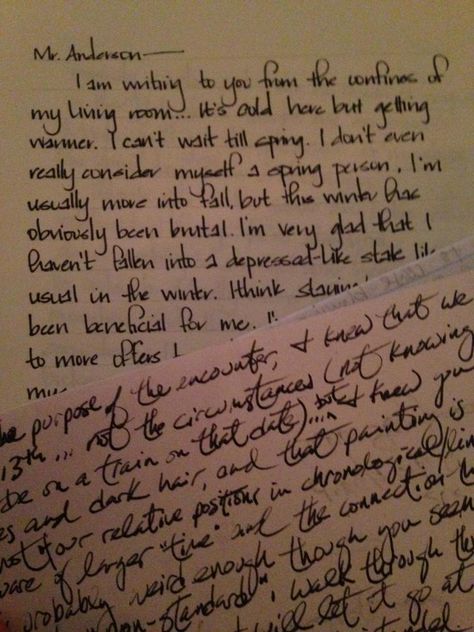 Mr. Anderson —
I am writing to you from the confines of
my living room... It's cold here but getting
warmer. I can't wait till spring. I don't even
really consider myself a spring person. I'm
usually more into fall, but this winter has
obviously been brutal. I'm very glad that I
haven't fallen into a depressed-like state like
usual in the winter. I think staying
been beneficial for me.
to more offers I
my
the purpose of the encounter, I knew that we
13th... not the circumstances (not knowing
be on a train on that date)... but I knew you
and dark hair, and that painting is
most of our relative positions in chronological/
of larger "time" and the connection
probably weird enough though you seem
non-standard", walk through
will let it go at